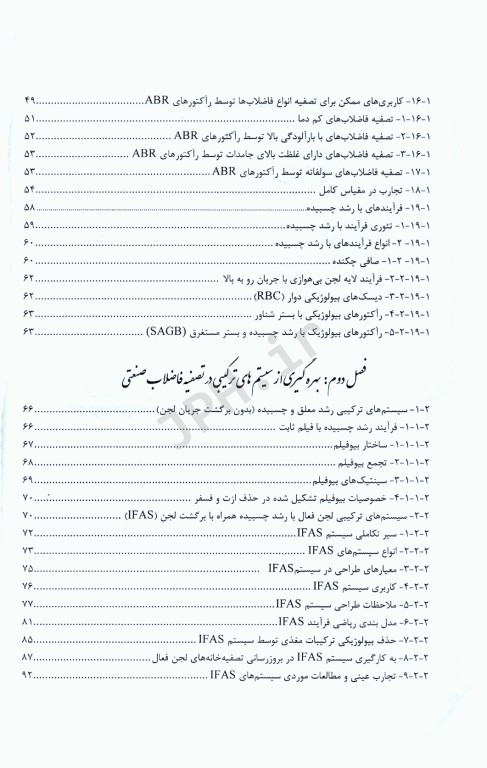 ۱-۱۶- کاربری‌های ممکن برای تصفیه انواع فاضلاب‌ها توسط رآکتورهای ABR....................................۴۹
۱-۱۶-۱- تصفیه فاضلاب‌های کم دما ....................................۵۱
۱-۱۶-۲- تصفیه فاضلاب‌های با بارآلودگی بالا توسط رآکتورهای ABR ....................................۵۲
۱-۱۶-۳- تصفیه فاضلاب‌های دارای غلظت بالای جامدات توسط رآکتورهای ABR ....................................۵۳
۱-۱۷- تصفیه فاضلاب‌های سولفاته توسط رآکتورهای ABR....................................۵۳
۱-۱۸- تجارب در مقیاس کامل ....................................۵۴
۱-۱۹- فرآیندهای با رشد چسبیده....................................۵۸
۱-۱۹-۱- تئوری فرآیند با رشد چسبیده....................................۵۹
۱-۱۹- ۲- انواع فرآیندهای با رشد چسبیده....................................۶۰
۱-۱۹- ۲-۱- صافی چکنده ....................................۶۰
۱-۱۹-۲-۲- فرآیند لایه لجن بی‌هوازی با جریان رو به بالا ....................................۶۲
۱-۱۹-۲-۳- دیسک‌های بیولوژیکی دوار (RBC)....................................۶۲
۱-۱۹-۲-۴- رآکتورهای بیولوژیکی با بستر شناور ....................................۶۳
۱-۱۹-۲-۵- رآکتورهای بیولوژیک با رشد چسبیده و بستر مستغرق (SAGB) ....................................۶۳
فصل دوم: بهره گیری از سیستم های ترکیبی در تصفیه فاضلاب صنعتی
۲-۱- سیستم‌های ترکیبی رشد معلق و چسبیده (بدون برگشت جریان لجن)....................................۶۶
۲-۱-۱- فرآیند رشد چسبیده با فیلم ثابت ....................................۶۶
۲-۱-۱-۱- ساختار بیوفیلم....................................۶۷
۲-۱-۱-۲- تجمع بیوفیلم....................................۶۸
۲-۱-۱-۳- سینتیک‌های بیوفیلم....................................۶۹
۲-۱-۱-۴- خصوصیات بیوفیلم تشکیل شده در حذف ازت و فسفر ....................................۷۰
۲-۲- سیستم‌های ترکیبی لجن فعال با رشد چسبیده همراه با برگشت لجن (IFAS) ....................................۷۰
۲-۲-۱- سیر تکاملی سیستم IFAS....................................۷۲
۲-۲-۲- انواع سیستم‌های IFAS ....................................۷۳
۲-۲-۳- معیارهای طراحی در سیستم‌IFAS ....................................۷۵
۲-۲-۴- کاربری سیستم IFAS ....................................۷۶
۲-۲-۵- ملاحظات طراحی سیستم IFAS....................................۷۷
۲-۲-۶- مدل بندی ریاضی فرآیند IFAS....................................۸۱
۲-۲-۷- حذف بیولوژیکی ترکیبات مغذی توسط سیستم IFAS ....................................۸۵
۲-۲-۸- به کارگیری سیستم IFAS در بروزرسانی تصفیه‌خانه‌های لجن فعال....................................۸۷
۲-۲-۹- تجارب عینی و مطالعات موردی سیستم‌های IFAS ....................................۹۲
JPH.ir